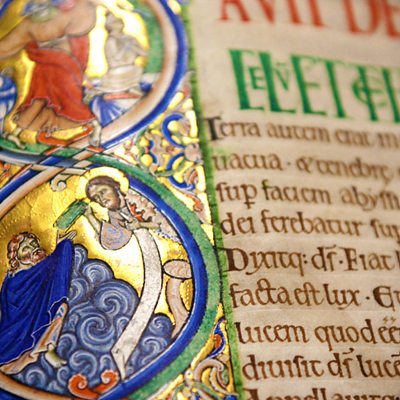 AVIT DE
Terra autem erat in
uacua · & tenebre
sup̄ faciem abyssi
dei ferebatur sup
Dixitq; d̄s. Fiat l
facta est lux · Et
lucem quod eē
diuisit d̄s luce